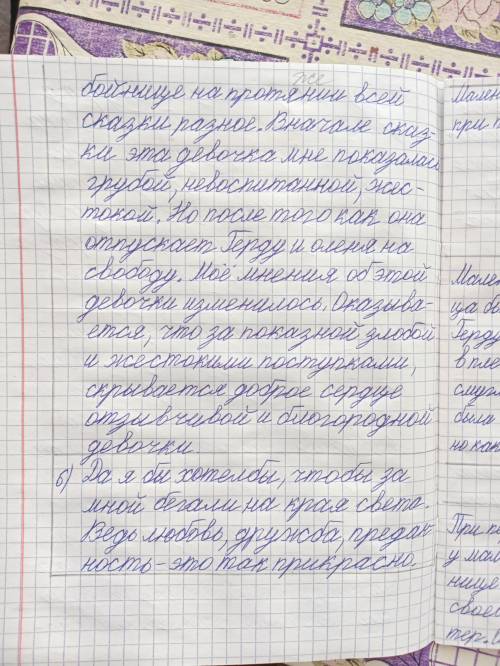 же
бойнице на протянии всей
сказки разное. Вначале сказ-
ки эта девочка мне показалась
грубой, невоспитанной, жес-
токой. Но после того как она
отпускает Герду и оленя на
свободу. Моё мнения об этой
девочки изменилось. Оказыва-
ется, что за показной злобой
и жестокими поступками,
скрывается доброе сердце
отзывчивой и благородной
девочки.
б) Да я бы хотелбы, чтобы за
мной бегали на края света.
Ведь любовь, дружба, предан-
ность - это так прикрасно.
Мален
при п
Мален
ща бо
Герду
в пле
смугл
была
но как
При по
у мал
нице
своей
тер.